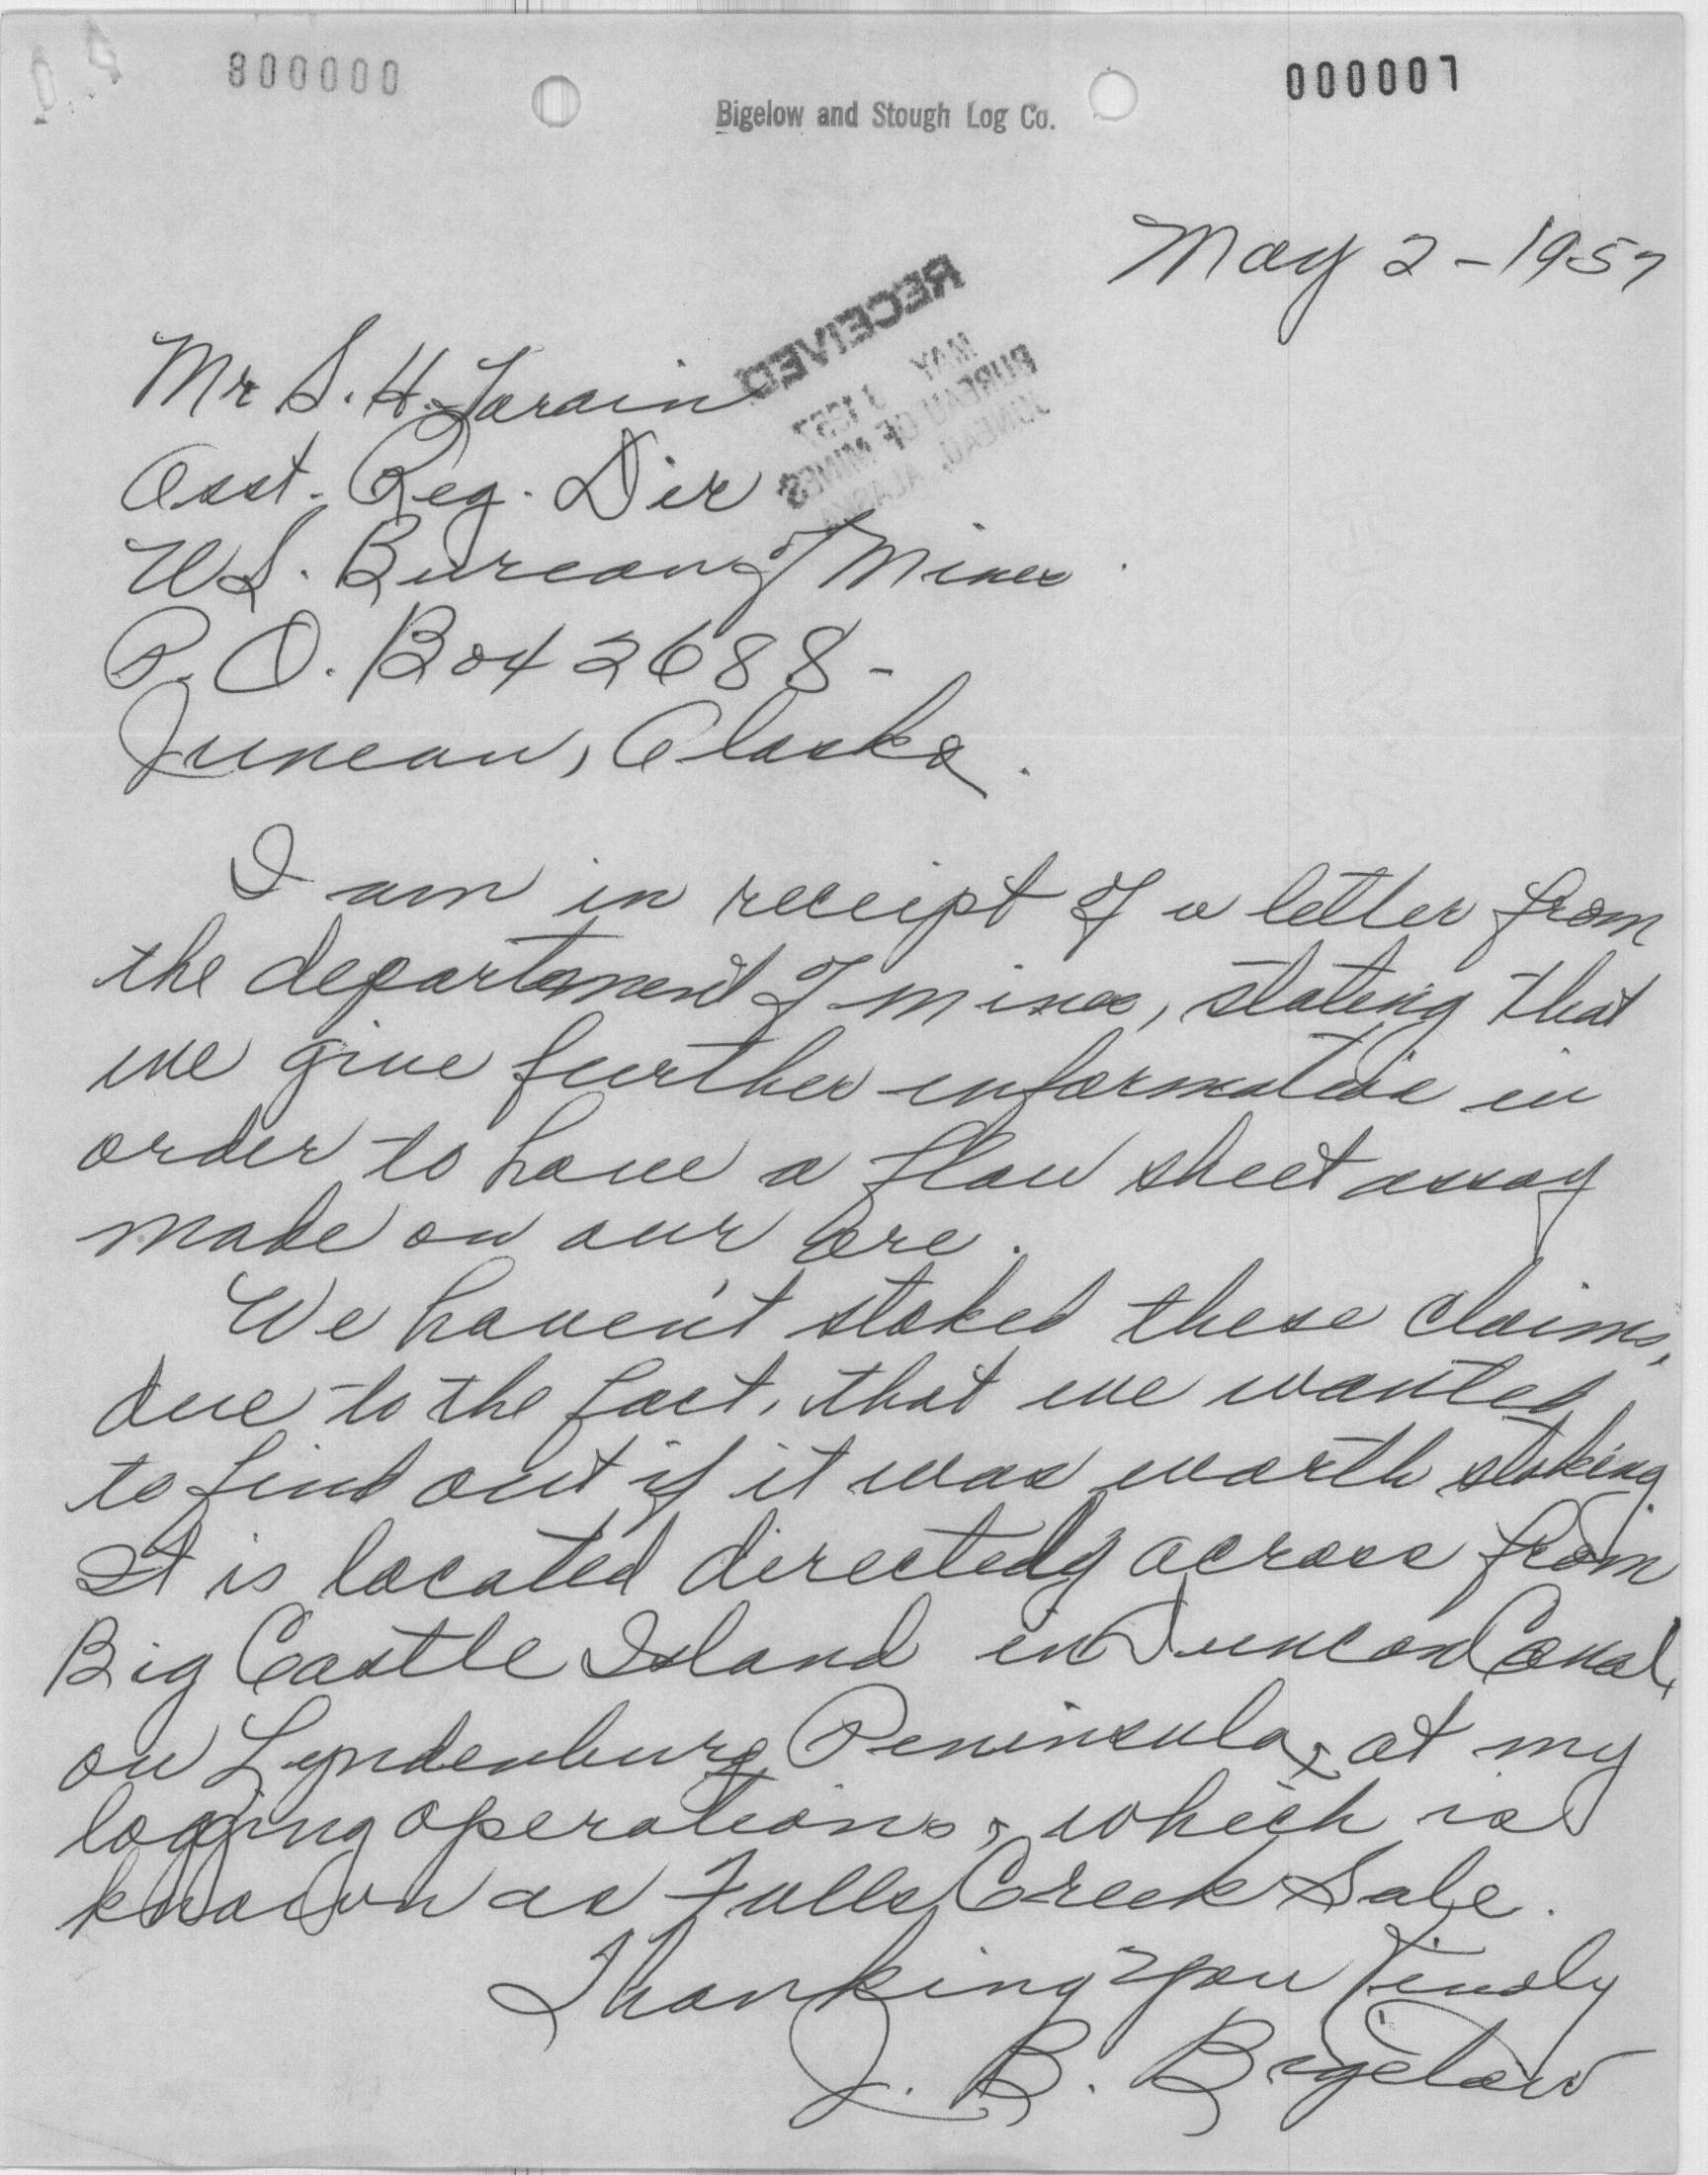 800000
000007
Bigelow and Stough Log Co.
May 2-1957
RECEIVED
MAY 1957
BUREAU OF MINES
JUNEAU, ALASKA
Mr S. H. Lorain
Asst. Reg. Dir
U.S. Bureau of Mines.
P.O. Box 2688-
Juneau, Alaska.
I am in receipt of a letter from
the department of mines, stating that
we give further information in
order to have a flow sheet assay
made on our ore.
We haven't staked these claims,
due to the fact, that we wanted
to find out if it was worth staking.
It is located directedly across from
Big Castle Island in Duncan Canal,
on Lyndenburg Peninsula, at my
logging operations, which is
known as Falls Creek Sale.
Thanking you kindly
J. B. Bigelow